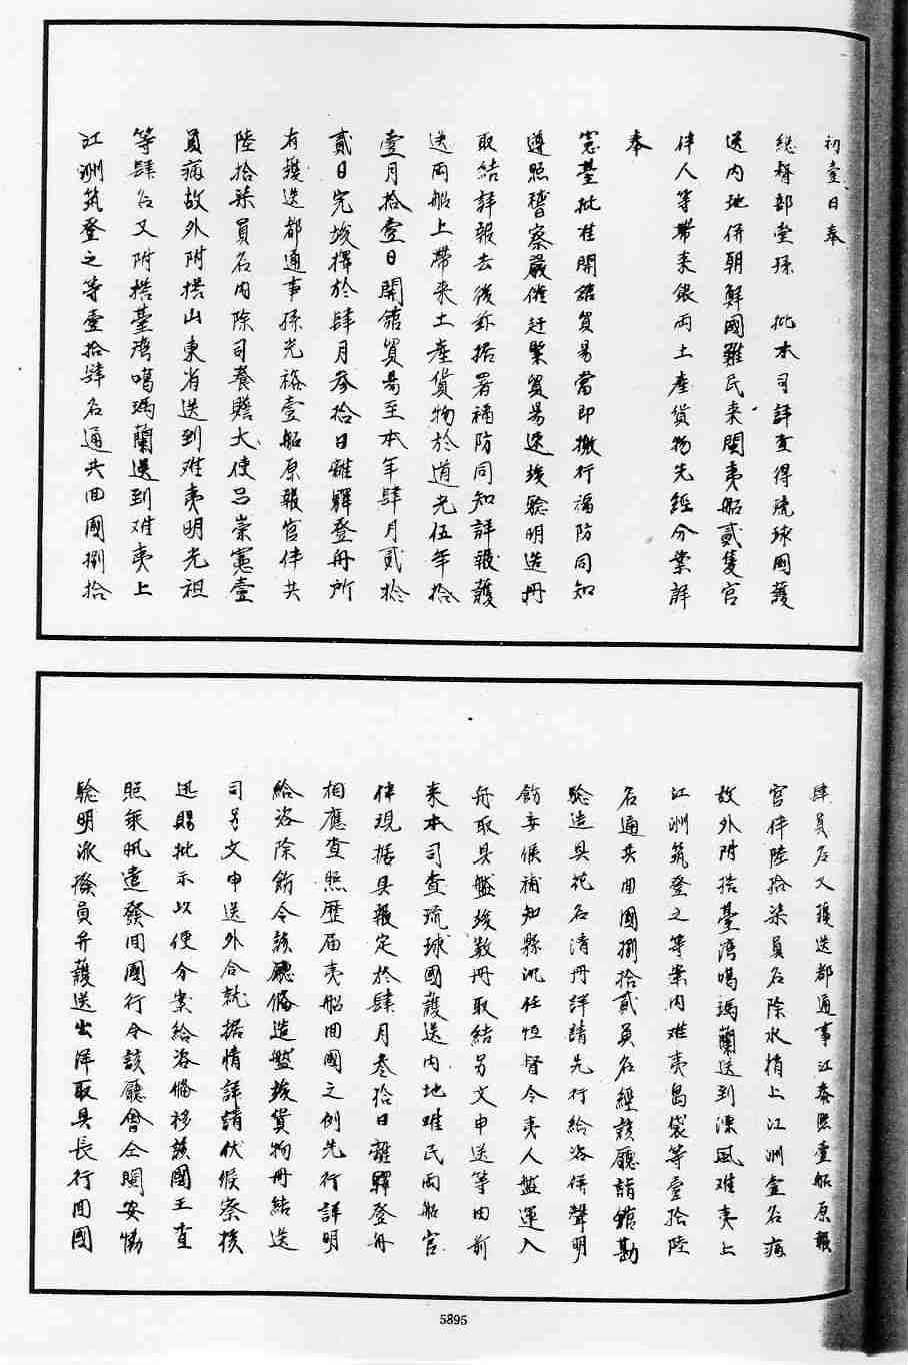 初壹日奉
總督部堂孫　批本司詳查得琉球國護
送內地併朝鮮國難民来閩夷船貳隻官
伴人等帶来銀兩土產貨物先經分案詳
奉
憲臺批准開館貿易當即檄行福防同知
遵照稽察嚴催赶緊貿易速竣驗明造冊
取結詳報去後玆据署福防同知詳報護
送兩船上帶来土產貨物於道光伍年拾
壹月拾壹日開館貿易至本年肆月貳拾
貳日完竣擇於肆月叁拾日離驛登舟所
有護送都通事孫光裕壹船原報官伴共
陸拾柒員名內除司養贍大使呂崇憲壹
員病故外附搭山東省送到难夷明光祖
等肆名又附搭臺灣噶瑪蘭送到难夷上
江洲筑登之等壹拾肆名通共回國捌拾
肆員名又護送都通事江泰熙壹船原報
官伴陸拾柒員名除水梢上江洲壹名病
故外附搭臺湾噶瑪蘭送到漂風难夷上
江洲筑登之等案內难夷島袋等壹拾陸
名通共回國捌拾貳員名經該廳詣舘勘
驗造具花名清冊詳請先行給咨併聲明
飭委候補知縣沈任恒督令夷人盤運入
舟取具盤竣数冊取結另文申送等由前
来本司查琉球國護送內地难民兩船官
伴現据具報定於肆月叁拾日離驛登舟
相應查照歷届夷船回國之例先行詳明
給咨除飭令該廳俻造盤竣貨物冊結送
司另文申送外合就据情詳請伏候察核
迅賜批示以便分案給咨俻移該國王查
照乘帆遣發回國行令該廳會仝閩安協
驗明派撥員弁護送出洋取具長行回國
5895